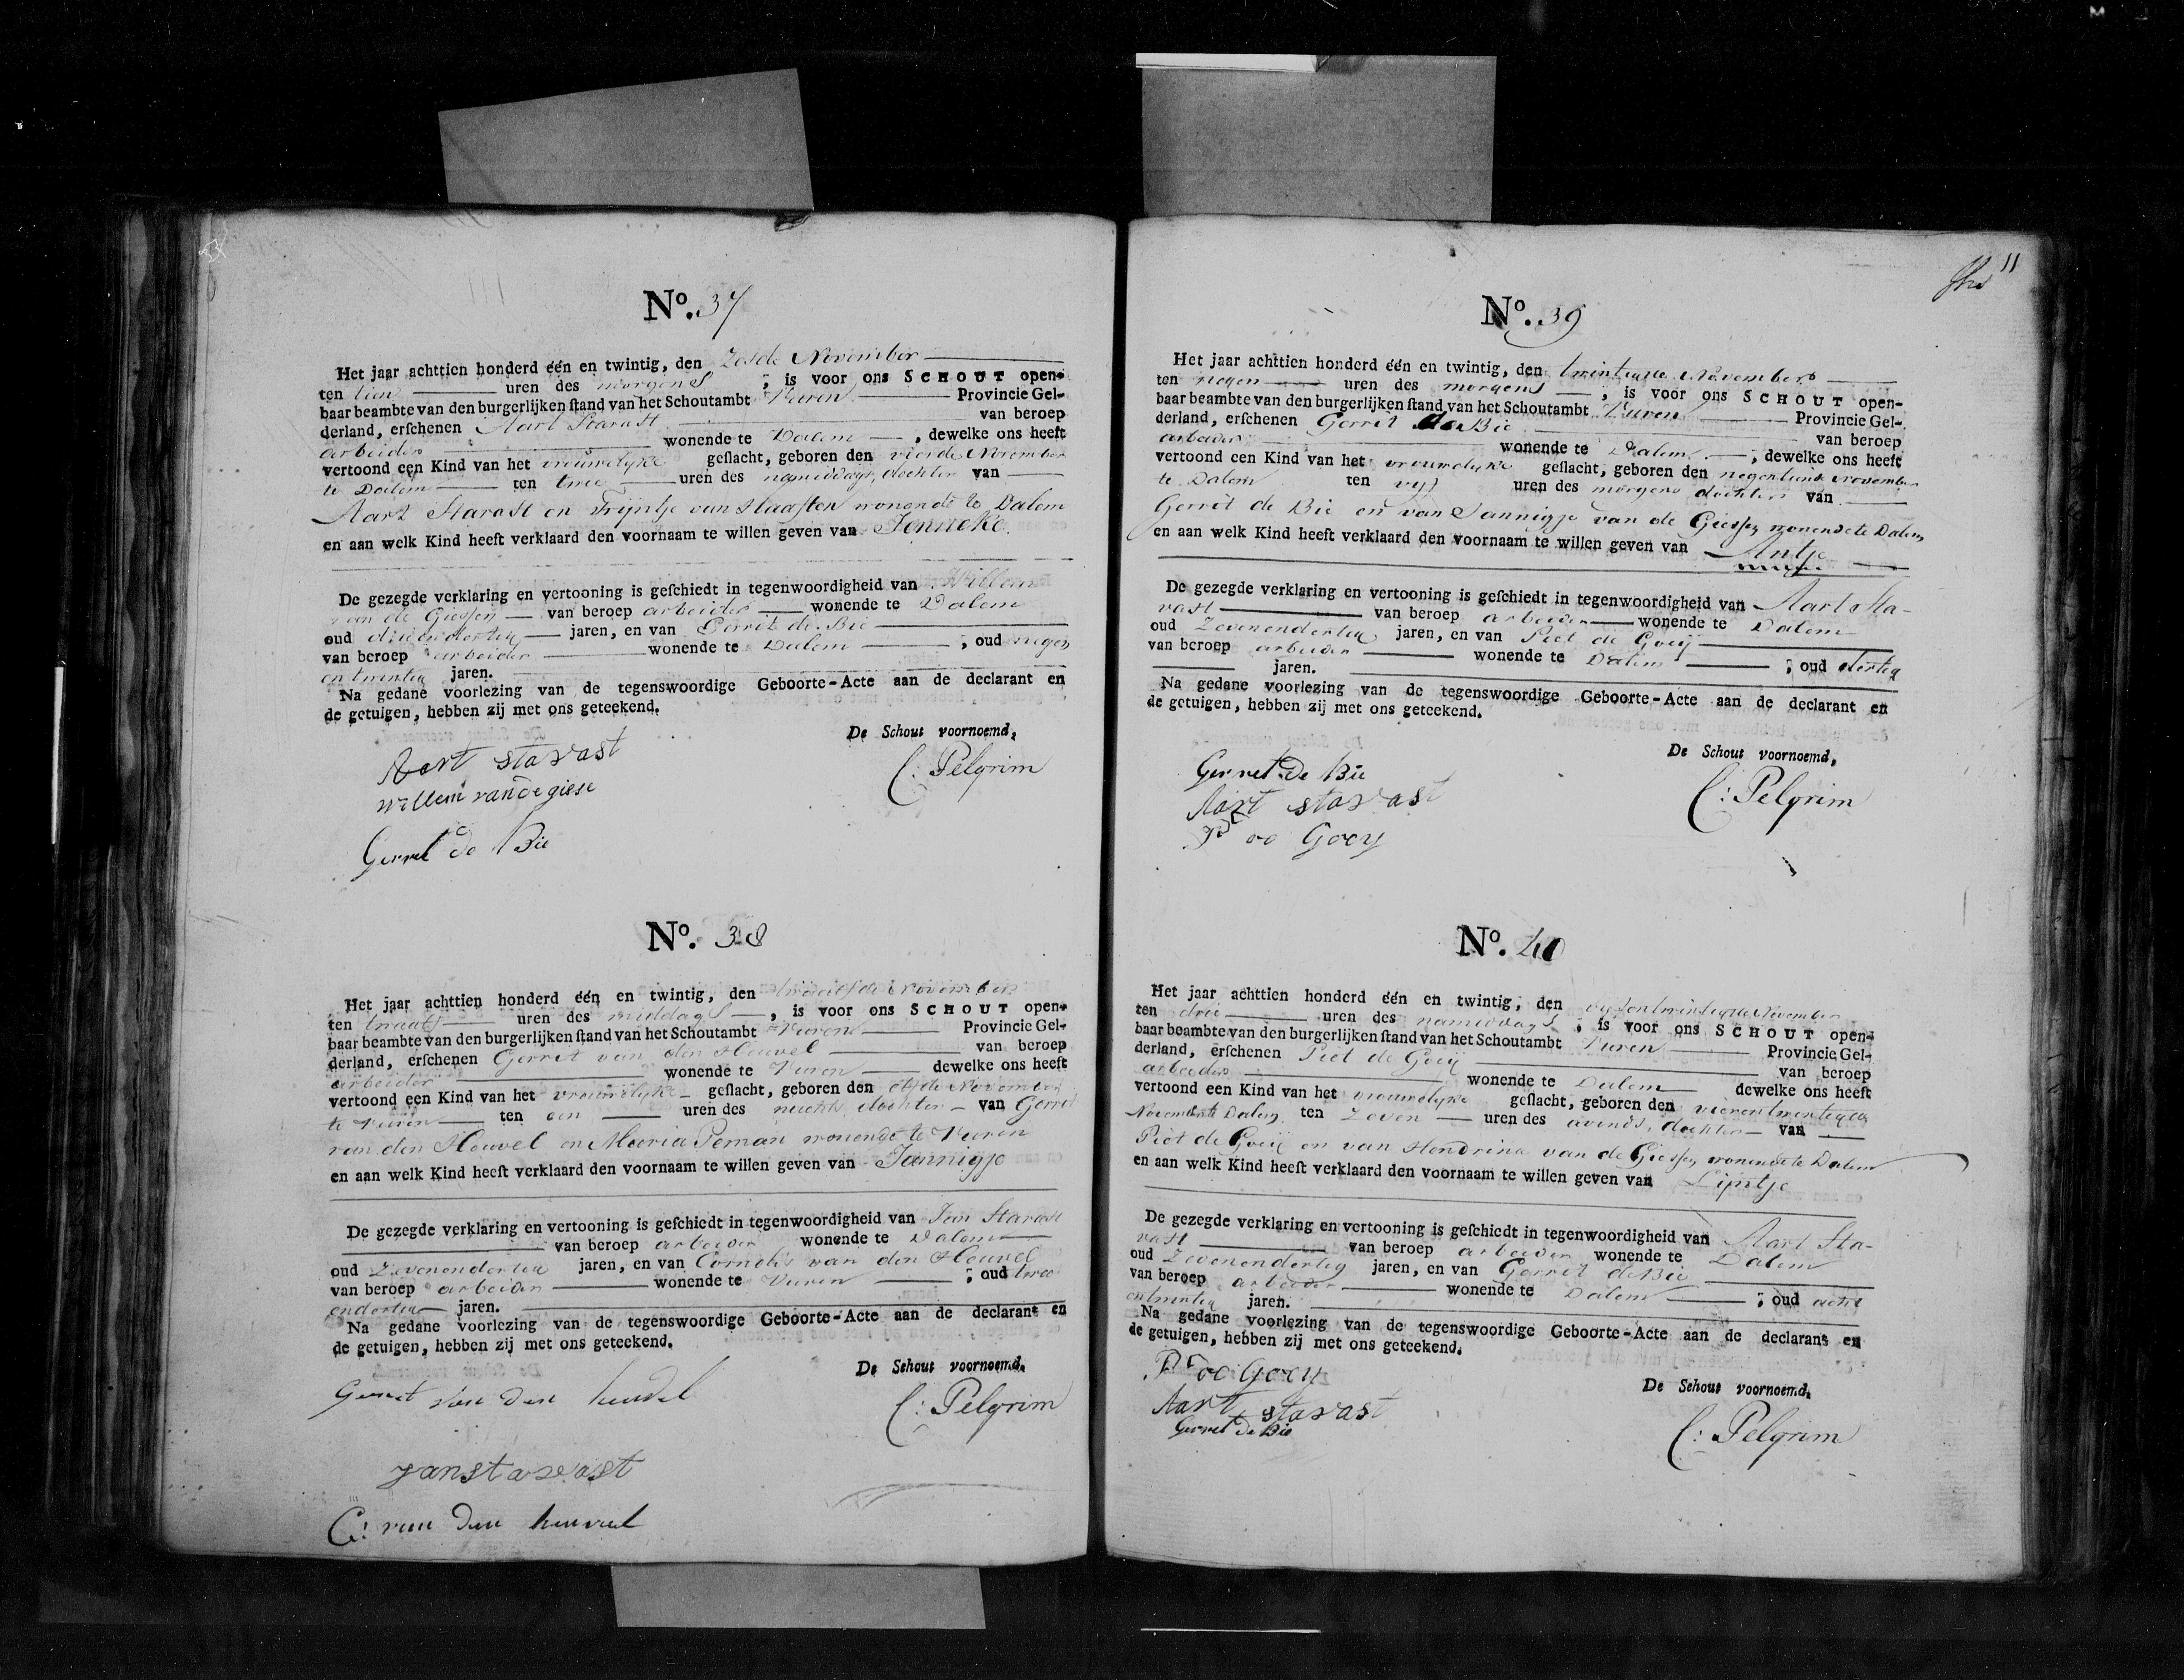 No. 37
Het jaar achttien honderd één en twintig, den Zesde November
ten tien uren des morgens, is voor ons SCHOUT open-
baar beambte van den burgerlijken stand van het Schoutambt Vuren Provincie Gel-
derland, erschenen Aart Stavast van beroep
arbeider wonende te Dalem, dewelke ons heeft
vertoond een Kind van het vrouwelyke geslacht, geboren den vierde November
te Dalem ten twee uren des namiddags, dochter van
Aart Stavast en Trijntje van Haaften wonende te Dalem
en aan welk Kind heeft verklaard den voornaam te willen geven van Jenneke.
De gezegde verklaring en vertooning is geschiedt in tegenwoordigheid van Willem
van de Giessen van beroep arbeider wonende te Dalem
oud jaren, en van Gerrit de Bie
van beroep arbeider wonende te Dalem; oud negen
en twintig jaren.
Na gedane voorlezing van de tegenswoordige Geboorte-Acte aan de declarant en
de getuigen, hebben zij met ons geteekend.
De Schout voornoemd,
Aart stavast
C: Pelgrim
willem van de giese
Gerret de Bie
No. 38
Het jaar achttien honderd één en twintig, den twaalfde November
ten twaalf uren des middags, is voor ons SCHOUT open-
baar beambte van den burgerlijken stand van het Schoutambt Vuren Provincie Gel-
derland, erschenen Gerrit van den Heuvel van beroep
arbeider wonende te Vuren dewelke ons heeft
vertoond een Kind van het vrouwelyke geslacht, geboren den elfde November
te Vuren ten een uren des nachts dochter van Gerrit
van den Heuvel en Maria Peman wonende te Vuren
en aan welk Kind heeft verklaard den voornaam te willen geven van Jannigje
De gezegde verklaring en vertooning is geschiedt in tegenwoordigheid van Jan Stavast
van beroep arbeider wonende te Dalem
oud Zevenendertig jaren, en van Cornelis van den Heuvel
van beroep arbeider wonende te Vuren; oud twee
endertig jaren.
Na gedane voorlezing van de tegenswoordige Geboorte-Acte aan de declarant en
de getuigen, hebben zij met ons geteekend.
De Schout voornoemd,
Gerret van den heuvel
C: Pelgrim
Jan stavast
C: van den heuvel
11
No. 39
Het jaar achttien honderd één en twintig, den twintigste November
ten negen uren des morgens, is voor ons SCHOUT open-
baar beambte van den burgerlijken stand van het Schoutambt Vuren Provincie Gel-
derland, erschenen Gerrit de Bie van beroep
arbeider wonende te Dalem, dewelke ons heeft
vertoond een Kind van het vrouwelyke geslacht, geboren den negentiende November
te Dalem ten vyf uren des morgens dochter van
Gerrit de Bie en van Jannigje van de Giessen wonende te Dalem
en aan welk Kind heeft verklaard den voornaam te willen geven van Antje
De gezegde verklaring en vertooning is geschiedt in tegenwoordigheid van Aart Sta-
vast van beroep arbeider wonende te Dalem
oud Zevenendertig jaren, en van Piet de Goeij
van beroep arbeider wonende te Dalem; oud dertig
jaren.
Na gedane voorlezing van de tegenswoordige Geboorte-Acte aan de declarant en
de getuigen, hebben zij met ons geteekend.
De Schout voornoemd,
Gerret de Bie
C: Pelgrim
Aart stavast
P de Goey
No. 40
Het jaar achttien honderd één en twintig, den vijfentwintigste November
ten drie uren des namiddags, is voor ons SCHOUT open-
baar beambte van den burgerlijken stand van het Schoutambt Vuren Provincie Gel-
derland, erschenen Piet de Goeij van beroep
arbeider wonende te Dalem dewelke ons heeft
vertoond een Kind van het vrouwelyke geslacht, geboren den vierentwintigste
November te Dalem ten Zeven uren des avonds, dochter van
Piet de Goeij en van Hendrina van de Giessen wonende te Dalem
en aan welk Kind heeft verklaard den voornaam te willen geven van Lijntje
De gezegde verklaring en vertooning is geschiedt in tegenwoordigheid van Aart Sta-
vast van beroep arbeider wonende te Dalem
oud Zevenendertig jaren, en van Gerrit de Bie
van beroep arbeider wonende te Dalem; oud acht
entwintig jaren.
Na gedane voorlezing van de tegenswoordige Geboorte-Acte aan de declarant en
de getuigen, hebben zij met ons geteekend.
P de Goey
De Schout voornoemd,
Aart stavast
C: Pelgrim
Gerret de Bie